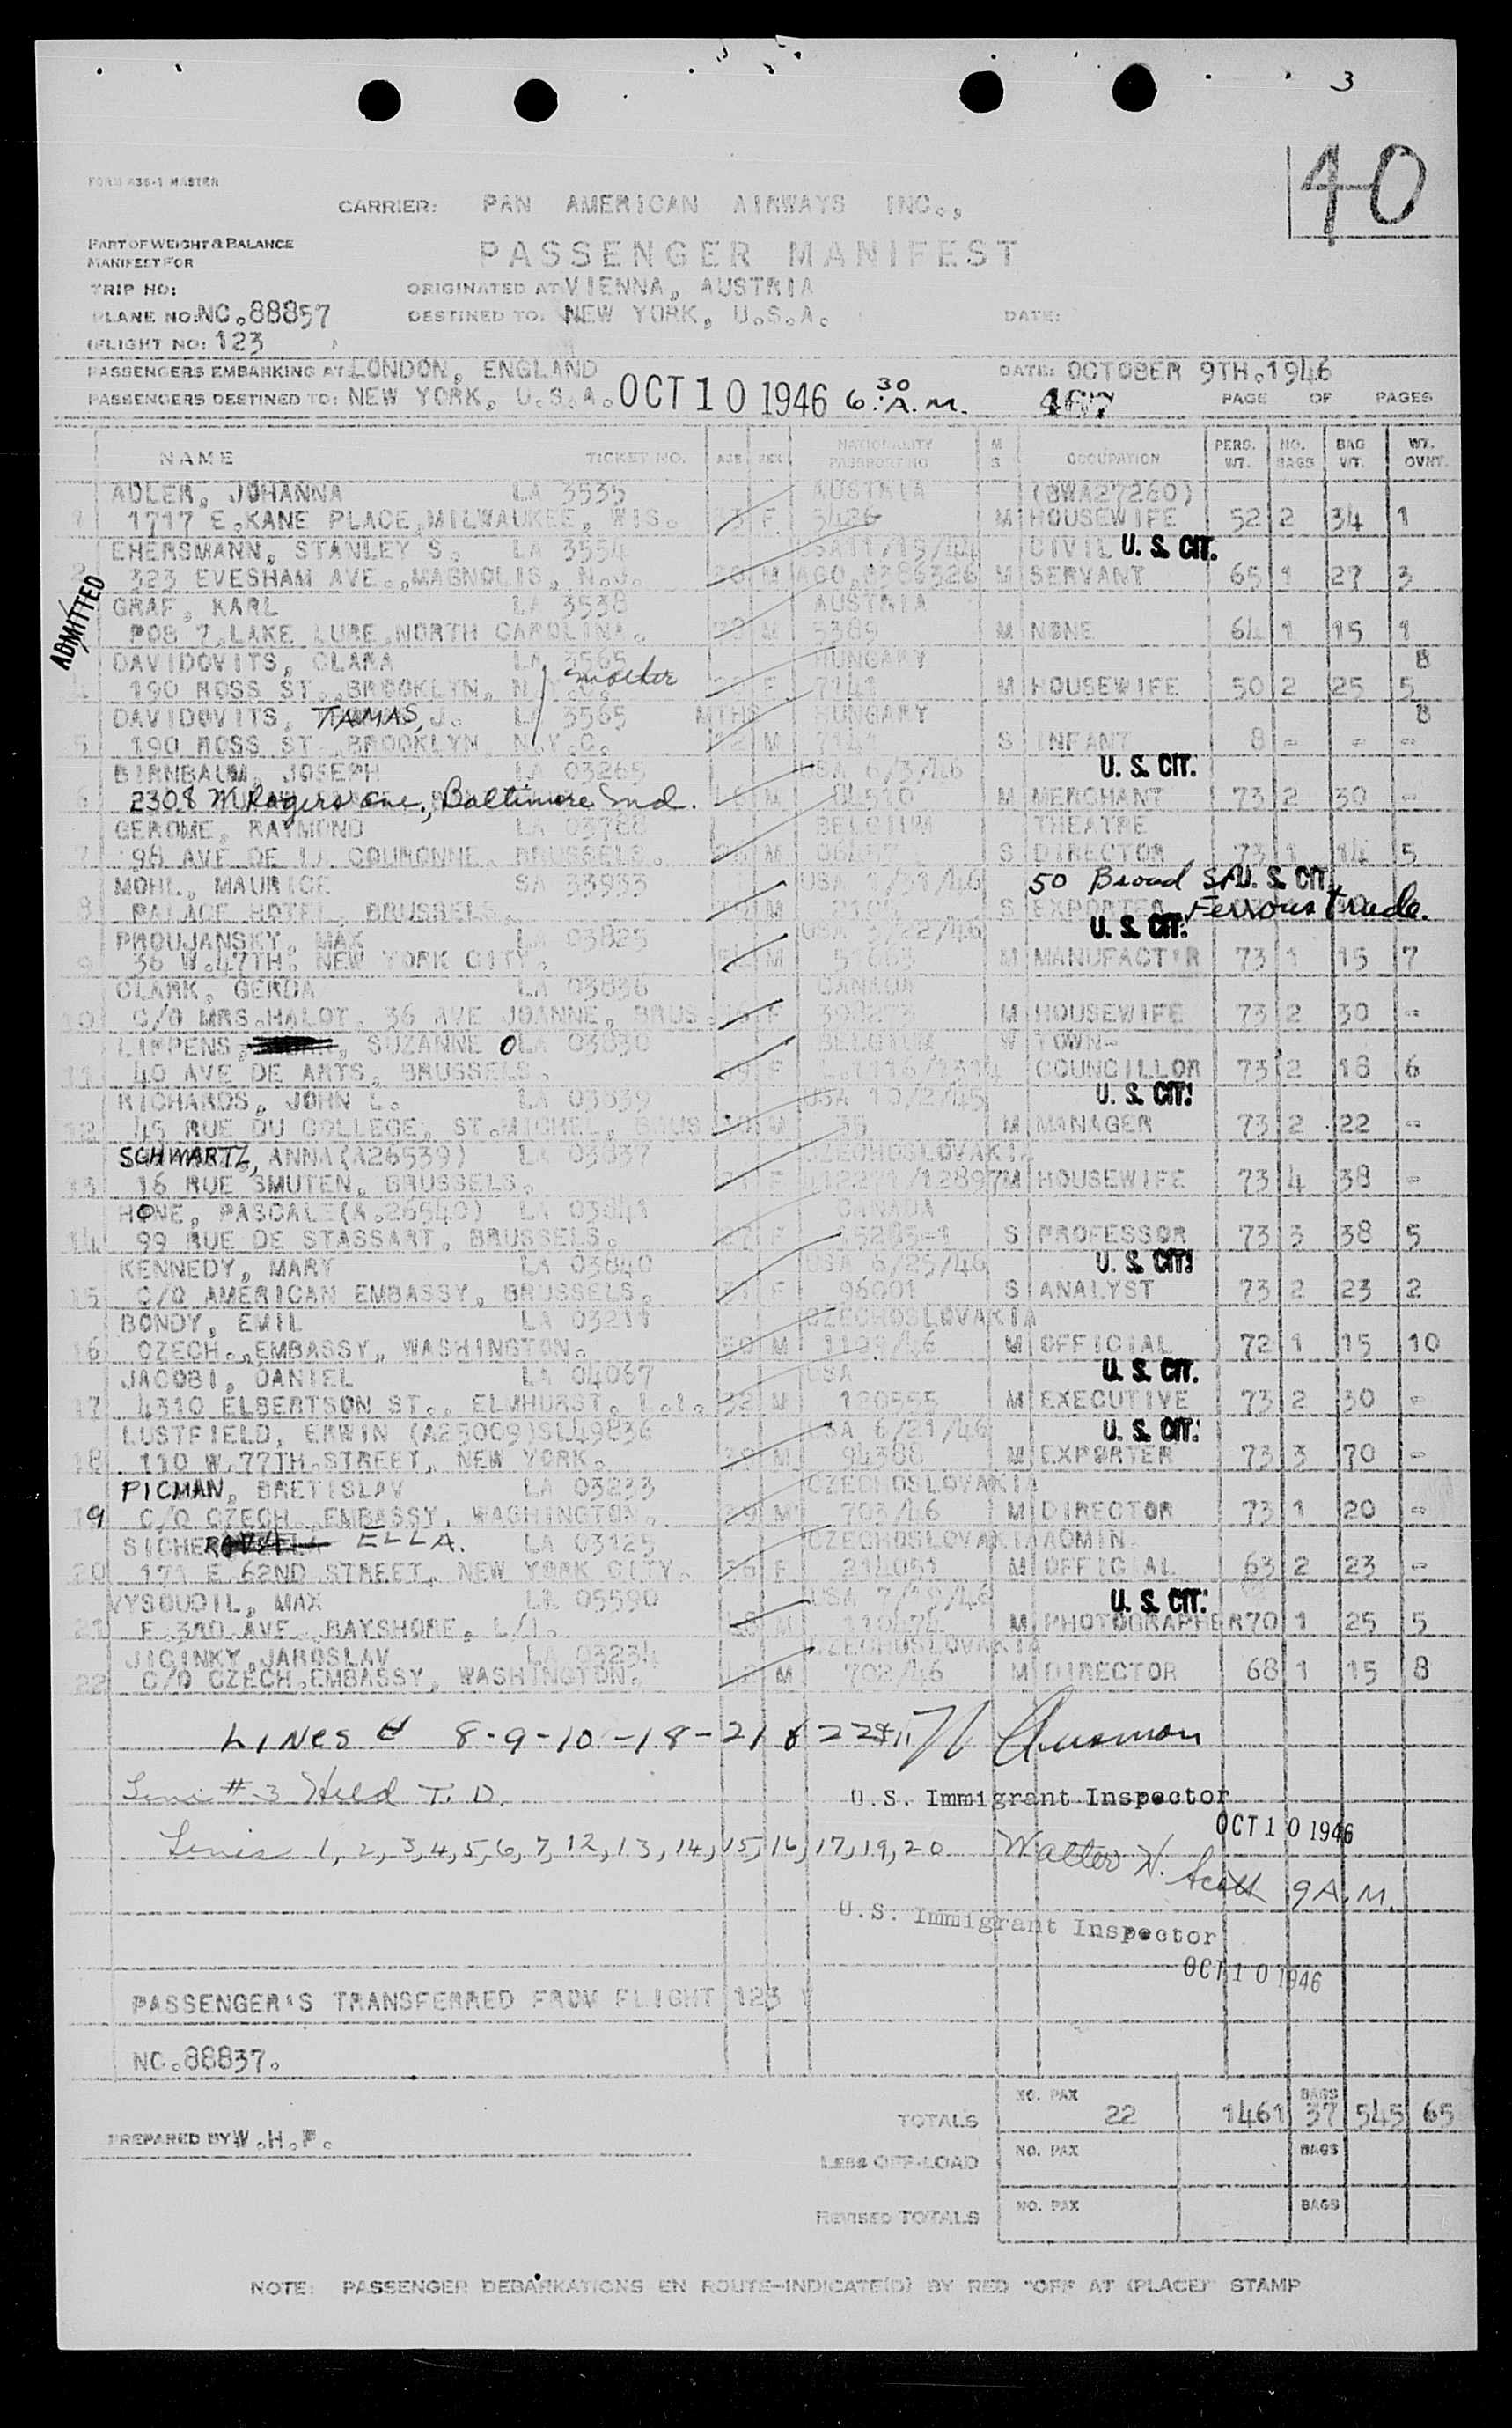 3
40
FORM 436-1 MASTER
CARRIER: PAN AMERICAN AIRWAYS INC.,
PART OF WEIGHT & BALANCE
MANIFEST FOR
PASSENGER MANIFEST
TRIP NO:
ORIGINATED AT VIENNA, AUSTRIA
PLANE NO: NC.88857
DESTINED TO: NEW YORK, U.S.A.
DATE:
(FLIGHT NO: 123
PASSENGERS EMBARKING AT: LONDON, ENGLAND
DATE: OCTOBER 9TH.1946
PASSENGERS DESTINED TO: NEW YORK, U.S.A. OCT 10 1946 6:30 A.M.
PAGE OF PAGES
NAME TICKET NO. AGE SEX NATIONALITY PASSPORT NO M S OCCUPATION PERS. WT. NO. BAGS BAG WT. WT. OVNT.
ADLER, JOHANNA LA 3535 AUSTRIA (BWA27260)
1 1717 E.KANE PLACE,MILWAUKEE, WIS. 33 F 5426 M HOUSEWIFE 52 2 34 1
EHERSMANN, STANLEY S. LA 3554 USA11/15/44 CIVIL U. S. CIT.
2 323 EVESHAM AVE.,MAGNOLIS, N.J. M AGO.0386326 M SERVANT 65 1 27 3
ADMITTED
GRAF, KARL LA 3538 AUSTRIA
POB 7,LAKE LURE,NORTH CAROLINA. M 5389 M NONE 64 1 15 1
DAVIDOVITS, CLARA LA 3565 mother HUNGARY 8
4 190 ROSS ST.,BROOKLYN, N.Y.C. F 7141 M HOUSEWIFE 50 2 25 5
DAVIDOVITS, TAMAS, J. LA 3565 MTHS HUNGARY 8
5 190 ROSS ST.,BROOKLYN, N.Y.C. 12 M 7141 S INFANT 8 - - -
BIRNBAUM, JOSEPH LA 03265 USA 6/3/46 U. S. CIT.
6 2308 W Rogers ave, Baltimore Md. M M MERCHANT 73 2 30 -
GEROME, RAYMOND LA 03788 BELGIUM THEATRE
7 98 AVE DE LA COURONNE, BRUSSELS. M S DIRECTOR 73 1 14 5
MOHL, MAURICE SA 33933 USA 1/31/46 50 Broad St U. S. CIT.
8 PALACE HOTEL, BRUSSELS. M S EXPORTER Ferrous Trade.
PROUJANSKY, MAX LA 03825 USA 3/22/46 U. S. CIT.
9 36 W.47TH. NEW YORK CITY. M M MANUFACT'R 73 1 15 7
CLARK, GERDA LA 03836 CANADA
10 C/O MRS.HALOT, 36 AVE JOANNE, BRUS. F M HOUSEWIFE 73 2 30 -
LIPPENS, SUZANNE O LA 03830 BELGIUM W TOWN-
11 40 AVE DE ARTS, BRUSSELS. F COUNCILLOR 73 2 18 6
RICHARDS, JOHN L. LA 03839 USA 10/2/45 U. S. CIT.
12 45 RUE DU COLLEGE, ST.MICHEL, BRUS M 35 M MANAGER 73 2 22 -
SCHWARTZ, ANNA(A26539) LA 03837 CZECHOSLOVAKIA
13 16 RUE SMUTEN, BRUSSELS. F /12897 M HOUSEWIFE 73 4 38 -
HONE, PASCALE(A.26540) LA 03841 CANADA
14 99 RUE DE STASSART, BRUSSELS. 27 15285-1 S PROFESSOR 73 3 38 5
KENNEDY, MARY LA 03840 USA 6/25/46 U. S. CIT.
15 C/O AMERICAN EMBASSY, BRUSSELS. 31 F 96001 S ANALYST 73 2 23 2
BONDY, EMIL LA 03211 CZECHOSLOVAKIA
16 CZECH.,EMBASSY, WASHINGTON. 50 M 1109/46 M OFFICIAL 72 1 15 10
JACOBI, DANIEL LA 04067 USA U. S. CIT.
17 4310 ELBERTSON ST., ELMHURST, L.I. 32 M 120555 M EXECUTIVE 73 2 30 -
LUSTFIELD, ERWIN (A25009)SL49836 USA 6/21/46 U. S. CIT.
18 110 W.77TH.STREET, NEW YORK. M 94388 M EXPORTER 73 3 70 -
PICMAN, BRETISLAV LA 03233 CZECHOSLOVAKIA
19 C/O CZECH. EMBASSY, WASHINGTON. 39 M 703/46 M DIRECTOR 73 1 20 -
SICHER ELLA. LA 03125 CZECHOSLOVAKIA ADMIN.
20 171 E.62ND STREET, NEW YORK CITY. 36 F 214051 M OFFICIAL 63 2 23 -
VYSOUDIL, MAX LA 05590 USA 7/19/46 U. S. CIT.
21 E.3RD.AVE.,BAYSHORE, L/I. M M PHOTOGRAPHER 70 1 25 5
JICINKY,JAROSLAV LA 03234 CZECHOSLOVAKIA
22 C/O CZECH.EMBASSY, WASHINGTON. M 702/46 M DIRECTOR 68 1 15 8
LINES # 8-9-10-18-21 & 22 & 11
Line # 3 Held T. D.
U.S. Immigrant Inspector
OCT 10 1946
Lines 1, 2, 3, 4, 5, 6, 7, 12, 13, 14, 15, 16, 17, 19, 20 Walter N. Scott 9 A.M.
U.S. Immigrant Inspector
OCT 10 1946
PASSENGER'S TRANSFERRED FROM FLIGHT 123
NC.88837.
NO. PAX BAGS
TOTALS 22 1461 37 545 65
PREPARED BY W.H.F.
LESS OFF-LOAD NO. PAX BAGS
REVISED TOTALS NO. PAX BAGS
NOTE: PASSENGER DEBARKATIONS EN ROUTE-INDICATE(D) BY RED "OFF AT (PLACE)" STAMP